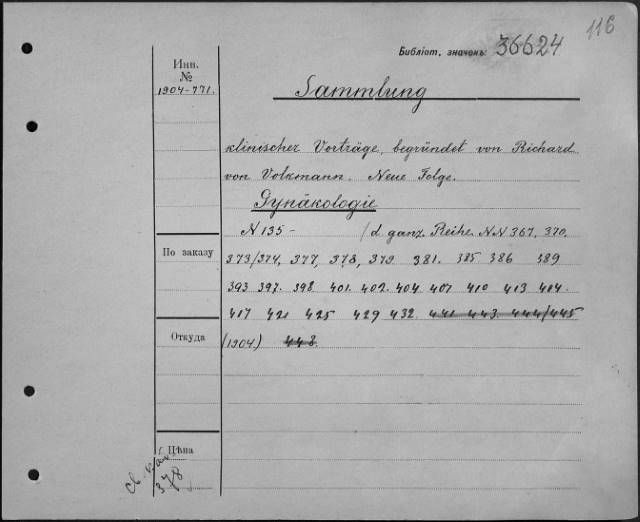 116
Библіот. значекъ 36624
Инв.
№
1904-771.
Sammlung
klinischer Vorträge, begründet von Richard
von Volkmann. Neue Folge.
Gynäkologie
N 135 - / d. ganz. Reihe. NN 367, 370.
По заказу
373/374, 377, 378, 379. 381. 385. 386 389
393 397. 398. 401. 402. 404 407 410 413 414.
417 421 425 429 432. 441 443. 444/445
Откуда
(1904.) 448.
Цѣна
378